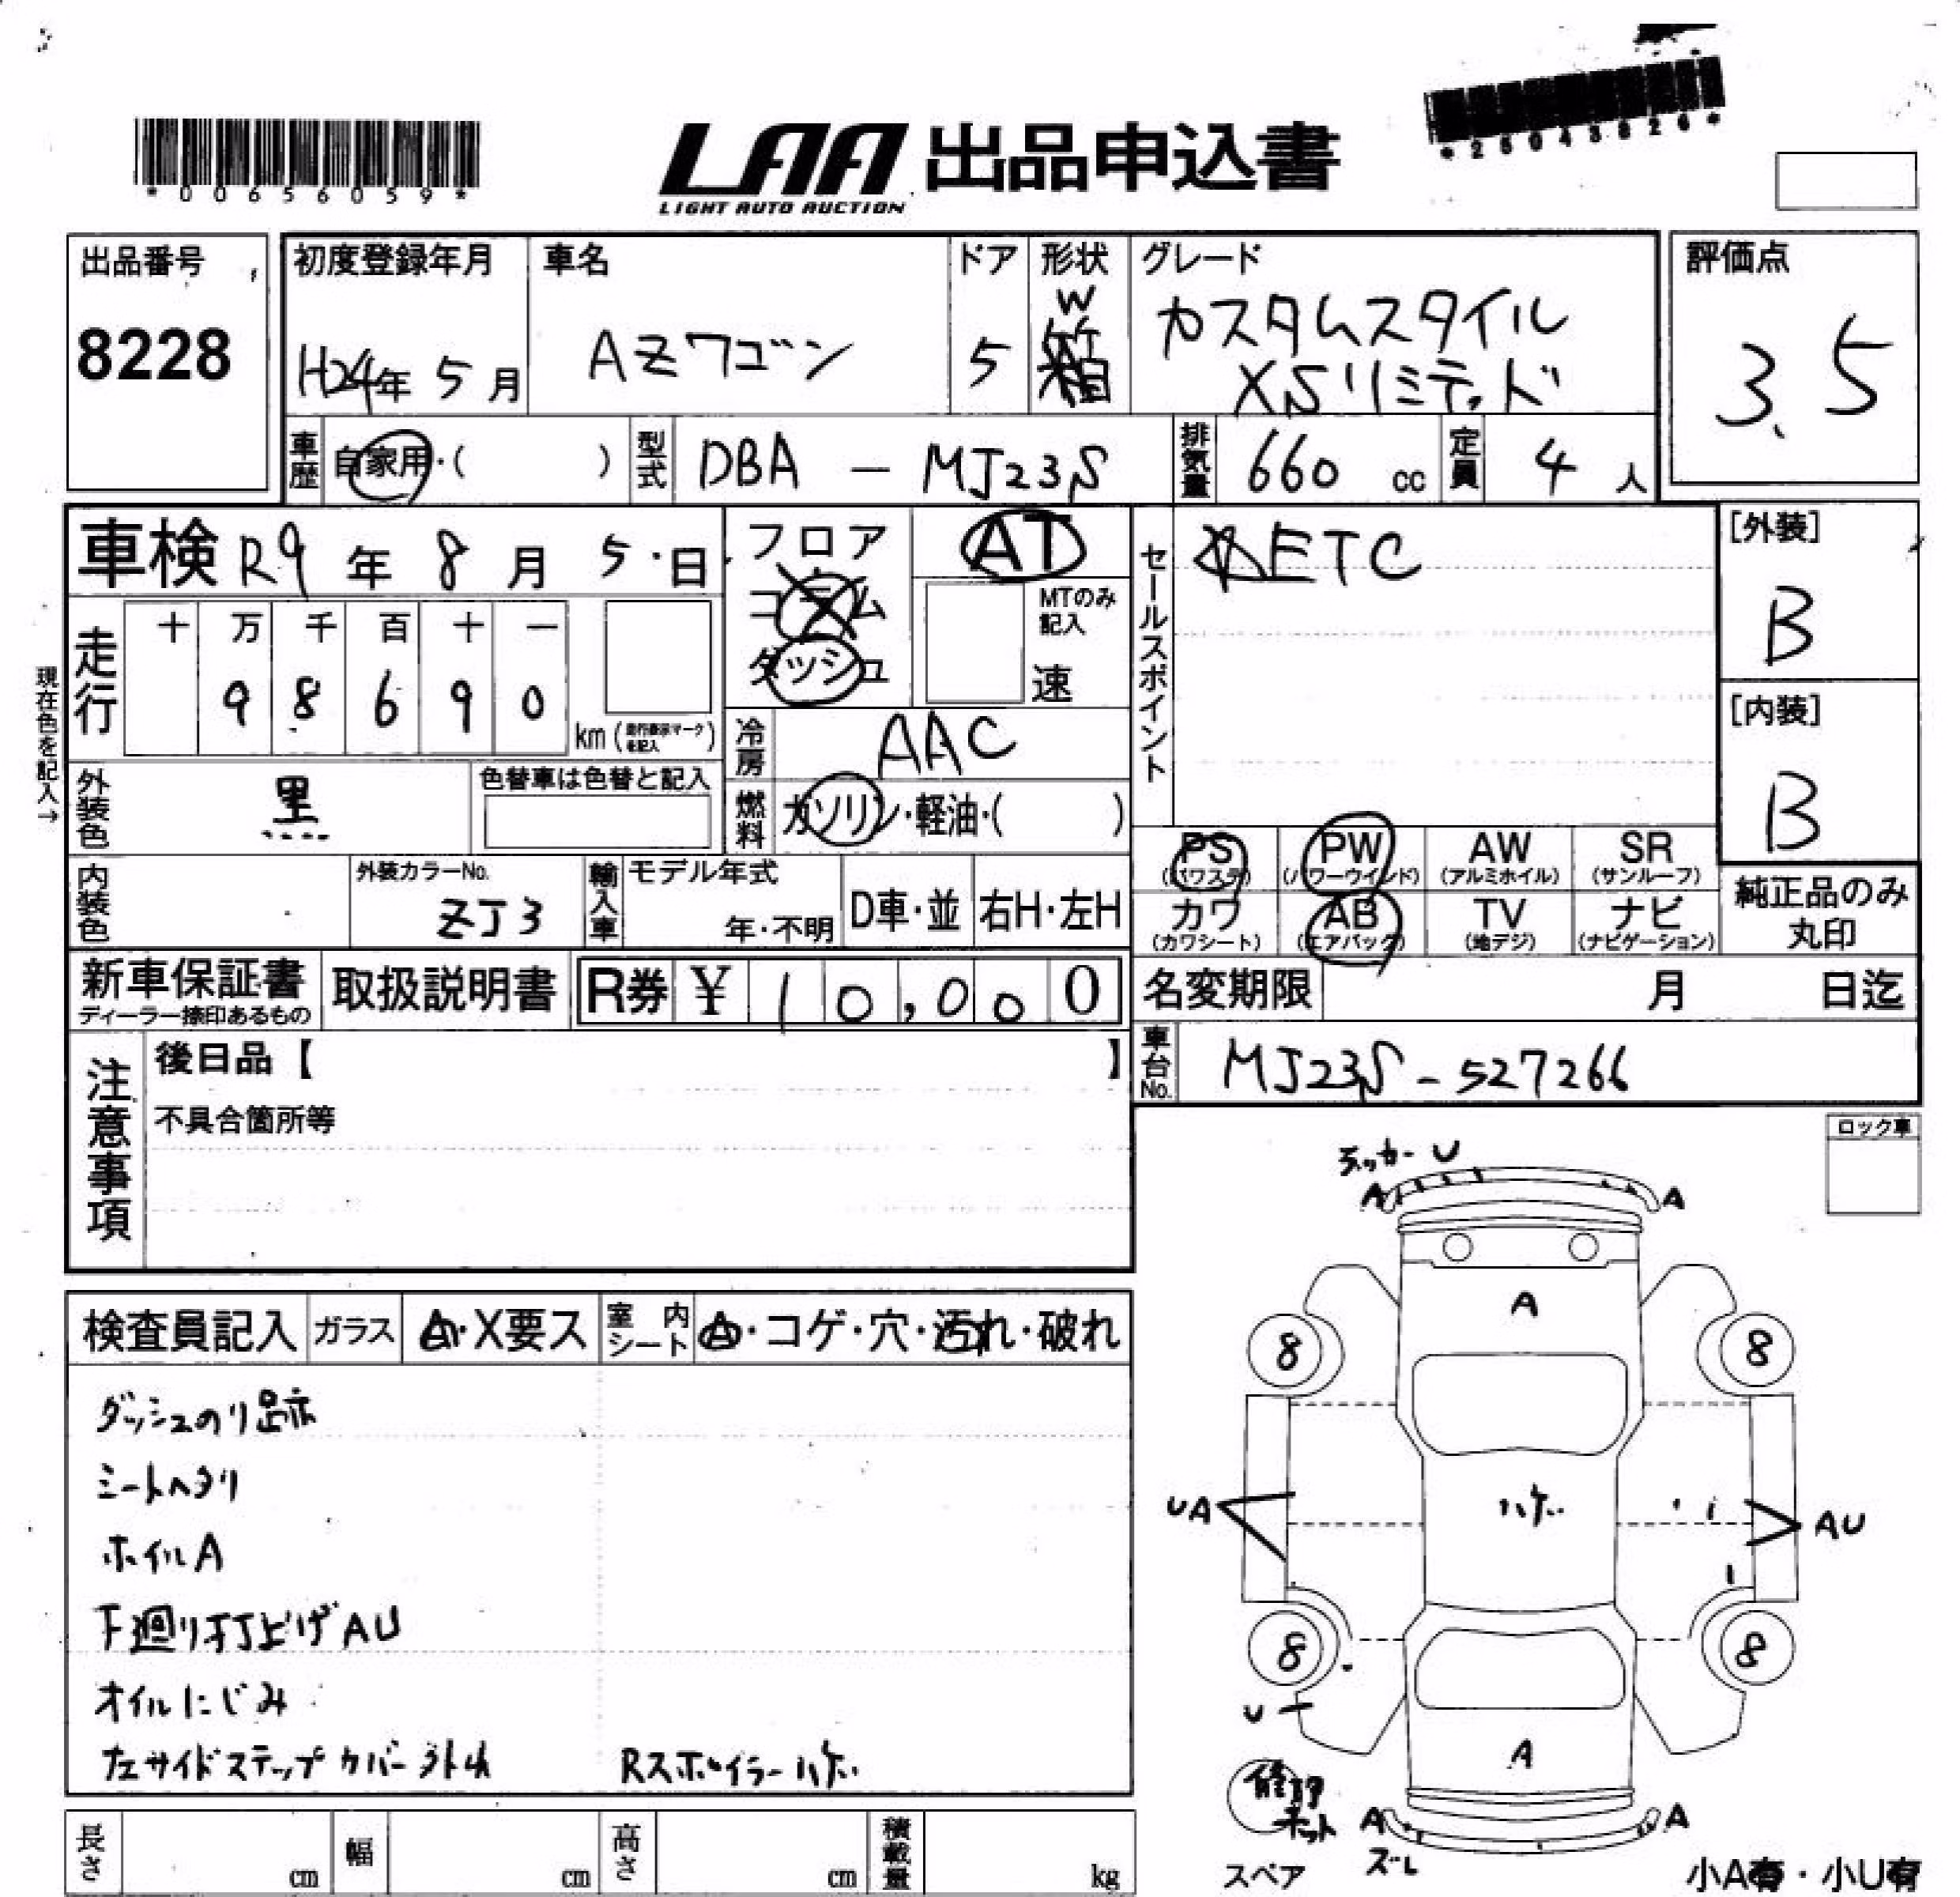 *00656059*
LAA 出品申込書
LIGHT AUTO AUCTION
*25043826*
出品番号
8228
初度登録年月
H24年 5月
車名
AZワゴン
ドア
5
形状
W
箱
グレード
カスタムスタイル
XSリミテッド
評価点
3.5
車歴
自家用・( )
型式
DBA - MJ23S
排気量
660 cc
定員
4 人
車検 R9 年 8 月 5 日
走行
十 万 千 百 十 一
9 8 6 9 0
km (走行表示マークを記入)
現在色を記入→
フロア
コラム
ダッシュ
AT
MTのみ記入
速
冷房
AAC
燃料
ガソリン・軽油・( )
セールスポイント
☆ETC
[外装]
B
[内装]
B
外装色
黒
色替車は色替と記入
内装色
外装カラーNo.
ZJ3
輸入車
モデル年式
年・不明
D車・並
右H・左H
PS
(パワステ)
PW
(パワーウインド)
AW
(アルミホイル)
SR
(サンルーフ)
カワ
(カワシート)
AB
(エアバッグ)
TV
(地デジ)
ナビ
(ナビゲーション)
純正品のみ
丸印
新車保証書
ディーラー捺印あるもの
取扱説明書
R券 ¥ 10,000
名変期限 月 日迄
車台No.
MJ23S-527266
注意事項
後日品【 】
不具合箇所等
ロック車
検査員記入
ガラス
A・X要ス
室内シート
A・コゲ・穴・汚れ・破れ
ダッシュのり跡
シートヘタリ
ホイルA
下廻り打上げAU
オイルにじみ
左サイドステップカバー外れ
Rスポイラーハゲ
U
A A
A
8 8
UA ハゲ AU
8 8
U
A
修理キット
A A
ズレ
スペア
小A有・小U有
長さ cm
幅 cm
高さ cm
積載量 kg